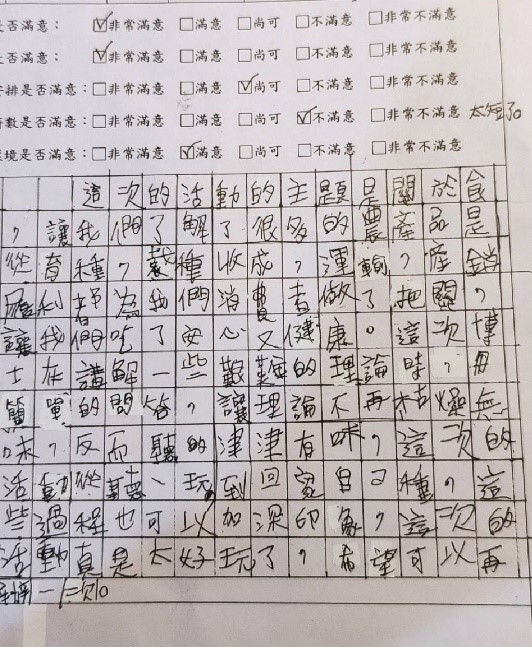 是否滿意：☑非常滿意 □滿意 □尚可 □不滿意 □非常不滿意
是否滿意：☑非常滿意 □滿意 □尚可 □不滿意 □非常不滿意
安排是否滿意：□非常滿意 □滿意 ☑尚可 □不滿意 □非常不滿意
數是否滿意：□非常滿意 □滿意 □尚可 ☑不滿意 □非常不滿意 太短了。
環境是否滿意：□非常滿意 ☑滿意 □尚可 □不滿意 □非常不滿意
這次的活動的主題是關於食
，讓我們了解了很多的農產品是
從育種，栽種收成，運輸，產銷
為我們消費者做了把關，
讓我們吃了安心又健康。這次博
士在講解一些艱難的理論時，用
簡單的問答，讓理論不再枯燥無
味，反而聽的津津有味，這次的
活動從聽、玩到回家自己種，這
些過程也可以加深印象，這次的
活動真是太好玩了，希望可以再
一次。